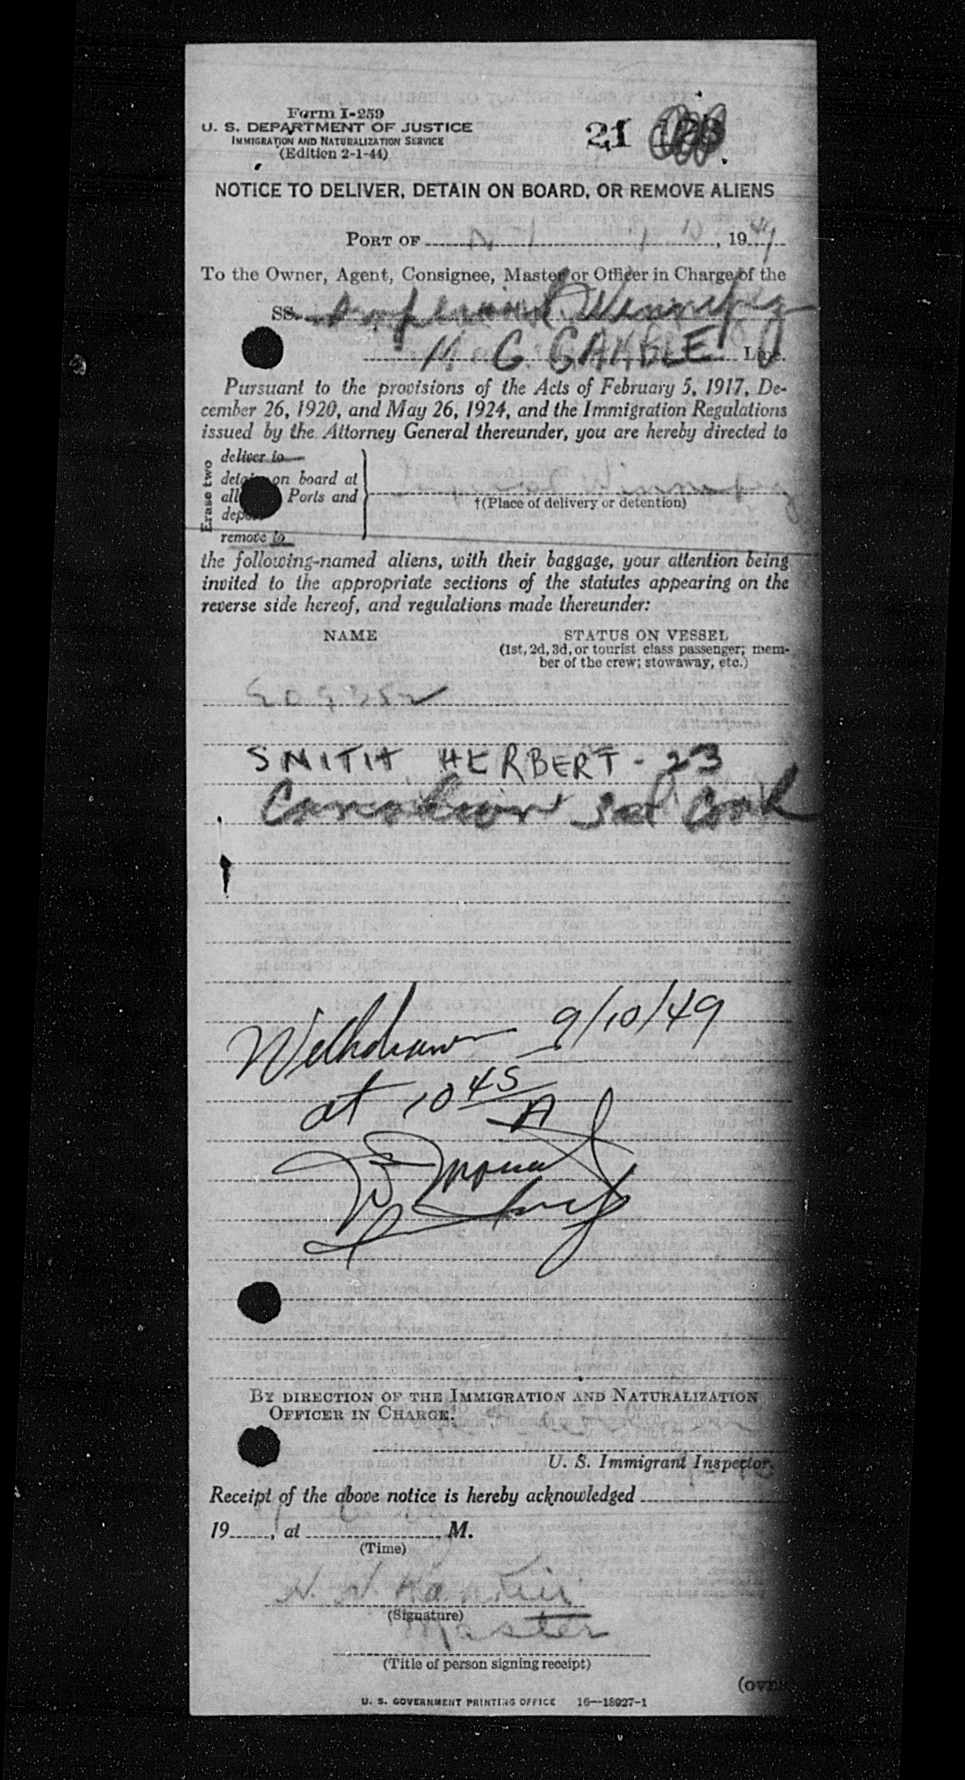 Form I-259
U. S. DEPARTMENT OF JUSTICE
IMMIGRATION AND NATURALIZATION SERVICE
(Edition 2-1-44)
21
NOTICE TO DELIVER, DETAIN ON BOARD, OR REMOVE ALIENS
PORT OF , 1949
To the Owner, Agent, Consignee, Master or Officer in Charge of the
SS. Imperial Winnipeg
G GAMBLE Line.
Pursuant to the provisions of the Acts of February 5, 1917, De-
cember 26, 1920, and May 26, 1924, and the Immigration Regulations
issued by the Attorney General thereunder, you are hereby directed to
Erase two
deliver to
detain on board at
all Ports and
remove to
Imperial Winnipeg
†(Place of delivery or detention)
the following-named aliens, with their baggage, your attention being
invited to the appropriate sections of the statutes appearing on the
reverse side hereof, and regulations made thereunder:
NAME STATUS ON VESSEL
(1st, 2d, 3d, or tourist class passenger; mem-
ber of the crew; stowaway, etc.)
SMITH, HERBERT - 23
Canadian Cook
Withdrawn 9/10/49
at 10 45/A
BY DIRECTION OF THE IMMIGRATION AND NATURALIZATION
OFFICER IN CHARGE.
U. S. Immigrant Inspector.
Receipt of the above notice is hereby acknowledged
19 , at , M.
(Time)
(Signature)
Master
(Title of person signing receipt)
U. S. GOVERNMENT PRINTING OFFICE 16—18927-1